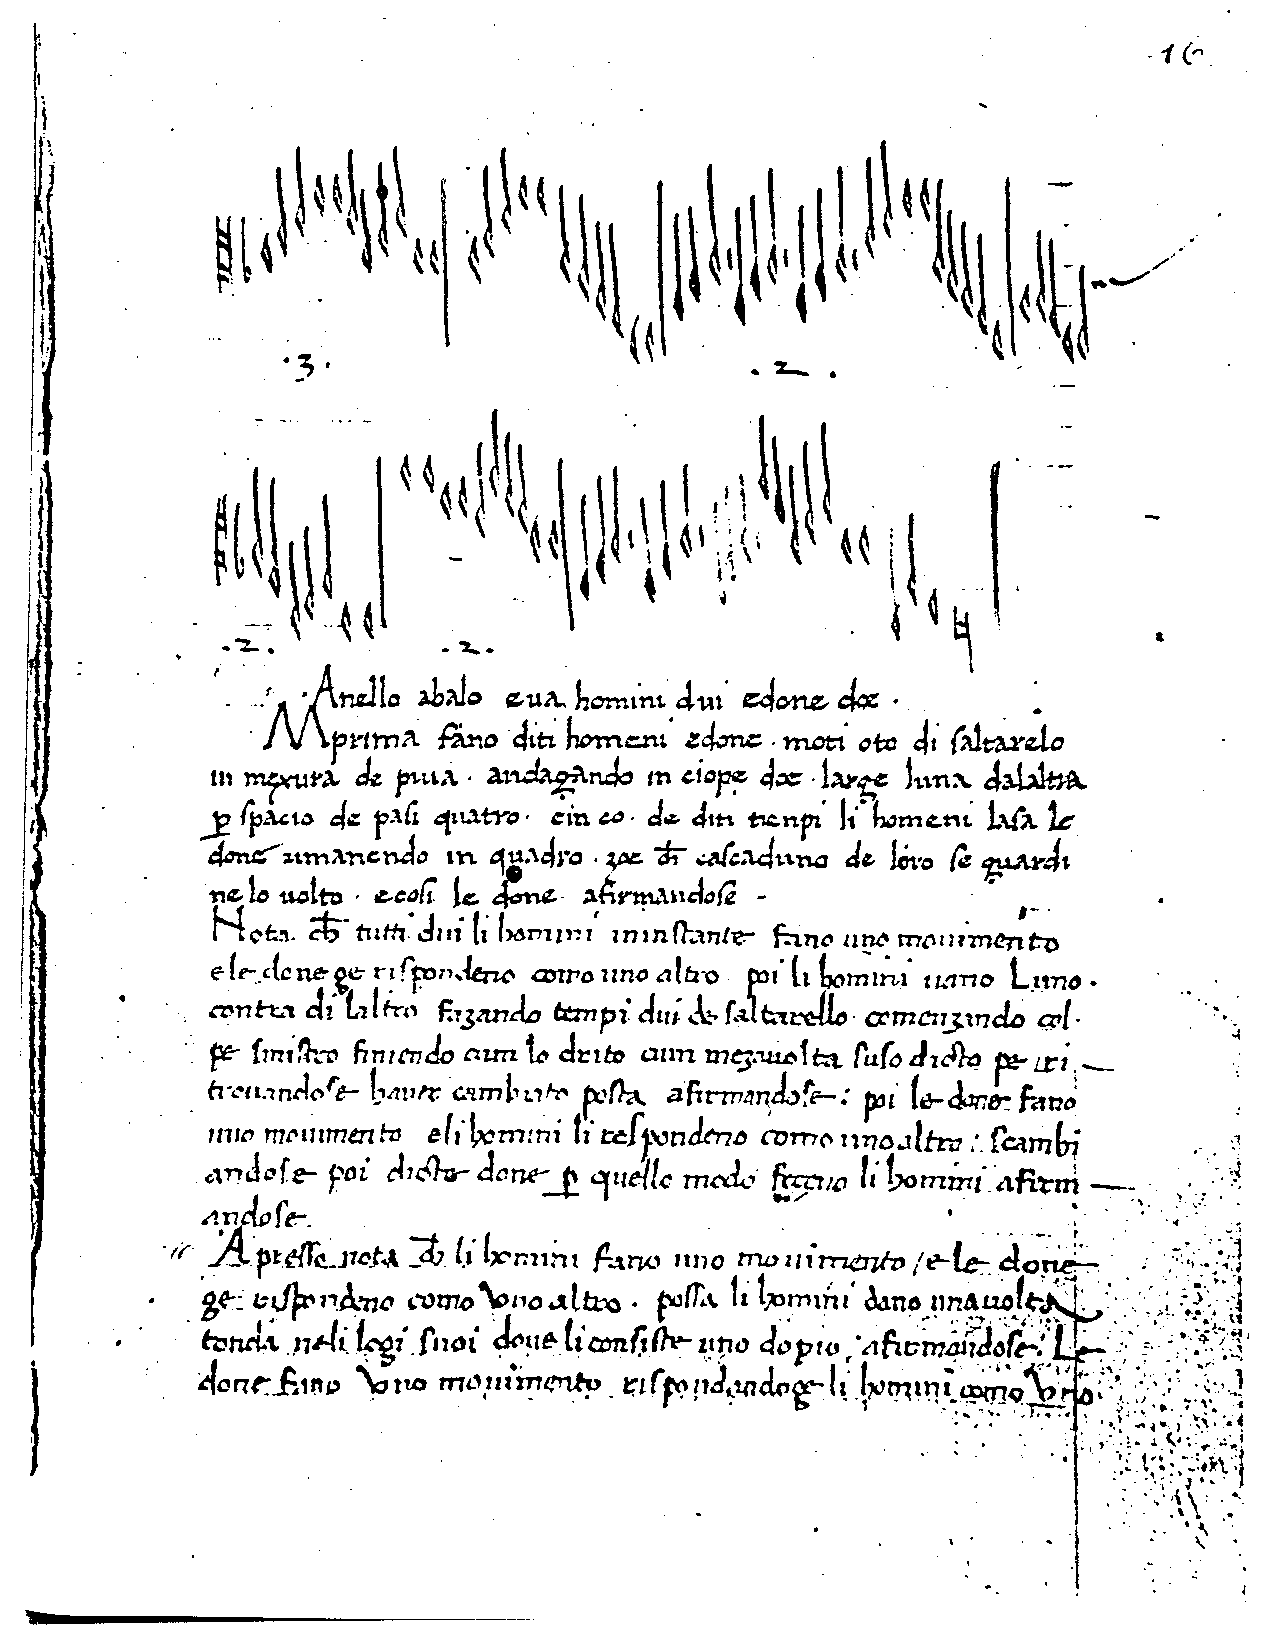 16
.3.
.2.
.2. .2.
Anello abalo eua homini dui edone doe .
Mprima fano diti homeni edone . moti oto di saltarelo
in mexura de piua . andagando in ciope doe . large luna dalaltra
p spacio de pasi quatro . ein co . de diti tienpi li homeni lasa le
done rimanendo in quadro . zoe ch cascaduno de loro se guardi
ne lo uolto . ecosi le done afirmandose -
Nota ch tutti dui li homini in instante fano uno mouimento
e le done ge rispondeno como uno altro poi li homini uano Luno .
contra di laltro fazando tempi dui de saltarello comenzando col .
pe sinistro finiendo cum lo drito cum mezauolta suso dicto pe
trouandose hauer cambiato posta afirmandose : poi le done fano
uno mouimento e li homini li respondeno como uno altro : scambi
andose poi dicte done p quello modo li homini afirm
andose .
Apresse nota ch li homini fano uno mouimento / e le done
ge rispondeno como Vno altro . possa li homini dano una uolta
tonda neli logi suoi doue li consiste uno dopio , afirmandose : Le
done fano Vno mouimento rispondandoge li homini como Vno